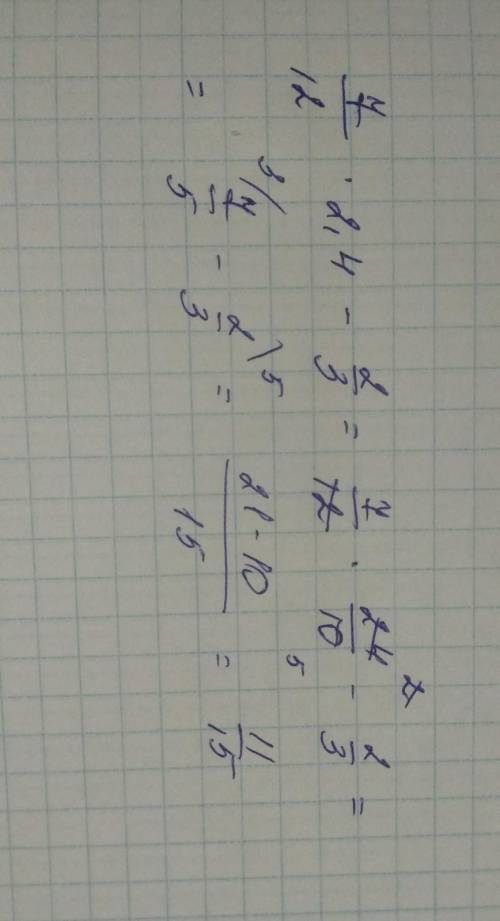 7/12 · 2,4 - 2/3 = 7/12 · 24/10 - 2/3 =
2
5
= 3/ 7/5 - 2/3 \5 = 21-10/15 = 11/15